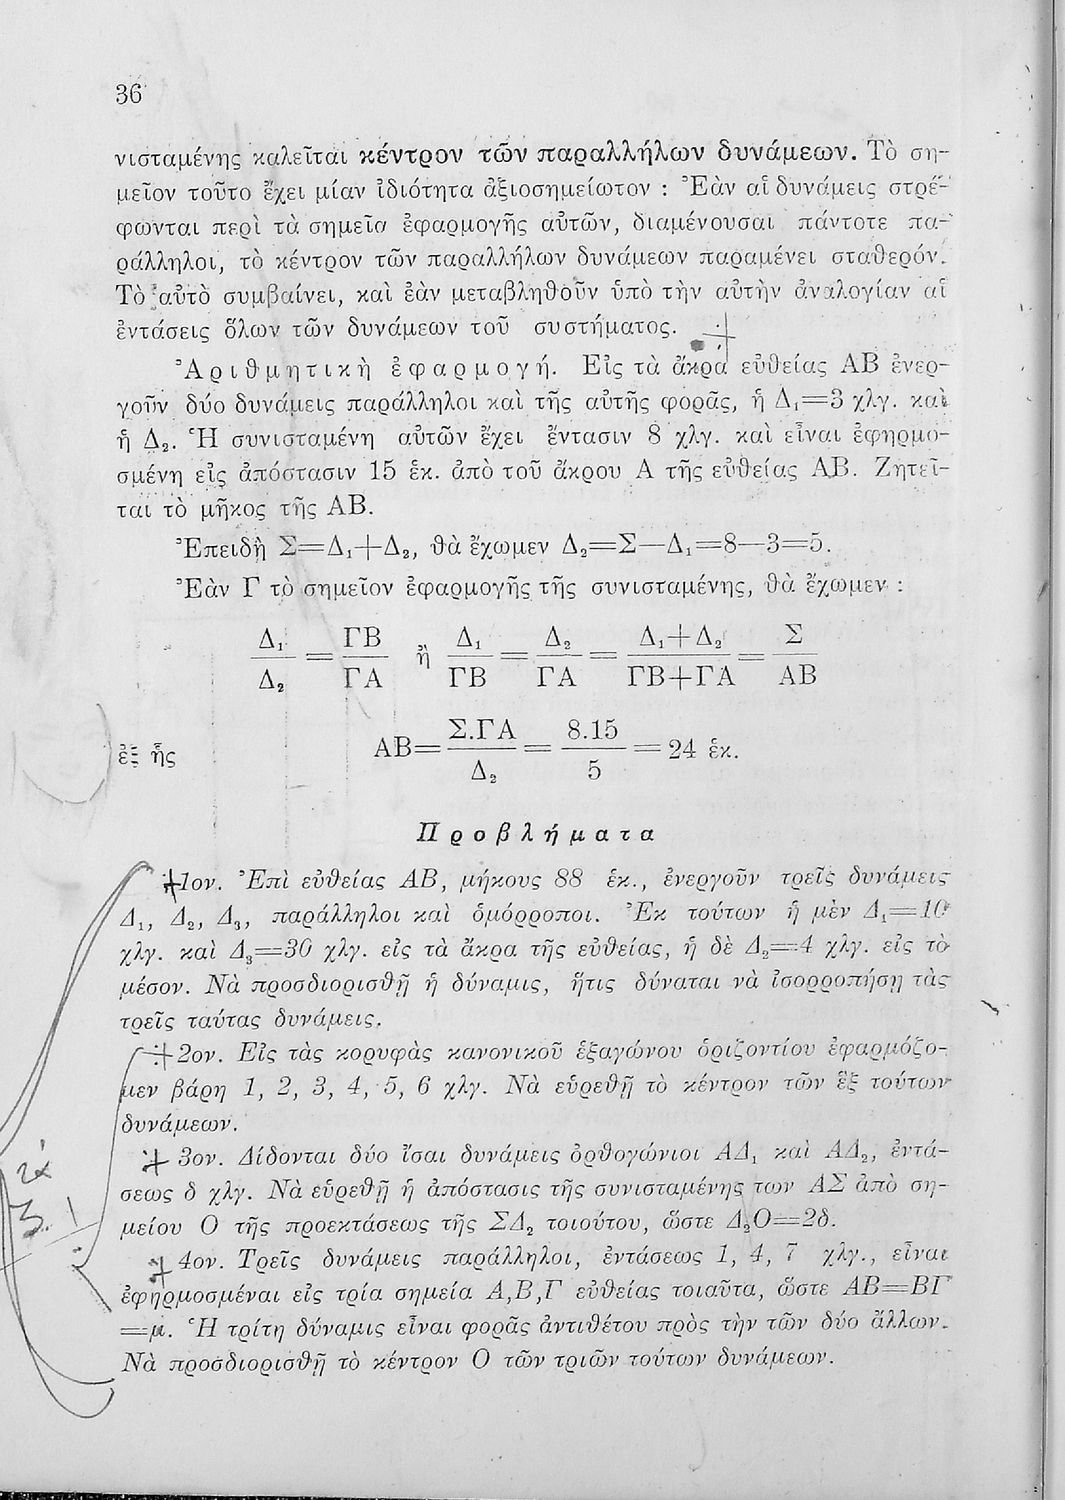 36
νισταμένης καλεῖται κέντρον τῶν παραλλήλων δυνάμεων. Τὸ ση-
μεῖον τοῦτο ἔχει μίαν ἰδιότητα ἀξιοσημείωτον : Ἐὰν αἱ δυνάμεις στρέ-
φωνται περὶ τὰ σημεῖα ἐφαρμογῆς αὐτῶν, διαμένουσαι πάντοτε πα-
ράλληλοι, τὸ κέντρον τῶν παραλλήλων δυνάμεων παραμένει σταθερόν.
Τὸ αὐτὸ συμβαίνει, καὶ ἐὰν μεταβληθοῦν ὑπὸ τὴν αὐτὴν ἀναλογίαν αἱ
ἐντάσεις ὅλων τῶν δυνάμεων τοῦ συστήματος.
Ἀριθμητικὴ ἐφαρμογή. Εἰς τὰ ἄκρα εὐθείας ΑΒ ἐνερ-
γοῦν δύο δυνάμεις παράλληλοι καὶ τῆς αὐτῆς φορᾶς, ἡ Δ₁=3 χλγ. καὶ
ἡ Δ₂. Ἡ συνισταμένη αὐτῶν ἔχει ἔντασιν 8 χλγ. καὶ εἶναι ἐφηρμο-
σμένη εἰς ἀπόστασιν 15 ἑκ. ἀπὸ τοῦ ἄκρου Α τῆς εὐθείας ΑΒ. Ζητεῖ-
ται τὸ μῆκος τῆς ΑΒ.
Ἐπειδὴ Σ=Δ₁+Δ₂, θὰ ἔχωμεν Δ₂=Σ—Δ₁=8—3=5.
Ἐὰν Γ τὸ σημεῖον ἐφαρμογῆς τῆς συνισταμένης, θὰ ἔχωμεν :
Δ₁/Δ₂ = ΓΒ/ΓΑ ἢ Δ₁/ΓΒ = Δ₂/ΓΑ = Δ₁+Δ₂/ΓΒ+ΓΑ = Σ/ΑΒ
ἐξ ἧς ΑΒ= Σ.ΓΑ/Δ₂ = 8.15/5 = 24 ἑκ.
Προβλήματα
1ον. Ἐπὶ εὐθείας ΑΒ, μήκους 88 ἑκ., ἐνεργοῦν τρεῖς δυνάμεις
Δ₁, Δ₂, Δ₃, παράλληλοι καὶ ὁμόρροποι. Ἐκ τούτων ἡ μὲν Δ₁=10
χλγ. καὶ Δ₃=30 χλγ. εἰς τὰ ἄκρα τῆς εὐθείας, ἡ δὲ Δ₂=4 χλγ. εἰς τὸ
μέσον. Νὰ προσδιορισθῇ ἡ δύναμις, ἥτις δύναται νὰ ἰσορροπήσῃ τὰς
τρεῖς ταύτας δυνάμεις.
2ον. Εἰς τὰς κορυφὰς κανονικοῦ ἑξαγώνου ὁριζοντίου ἐφαρμόζο-
μεν βάρη 1, 2, 3, 4, 5, 6 χλγ. Νὰ εὑρεθῇ τὸ κέντρον τῶν ἓξ τούτων
δυνάμεων.
3ον. Δίδονται δύο ἴσαι δυνάμεις ὀρθογώνιοι ΑΔ₁ καὶ ΑΔ₂, ἐντά-
σεως δ χλγ. Νὰ εὑρεθῇ ἡ ἀπόστασις τῆς συνισταμένης των ΑΣ ἀπὸ ση-
μείου Ο τῆς προεκτάσεως τῆς ΣΔ₂ τοιούτου, ὥστε Δ₂Ο=2δ.
4ον. Τρεῖς δυνάμεις παράλληλοι, ἐντάσεως 1, 4, 7 χλγ., εἶναι
ἐφηρμοσμέναι εἰς τρία σημεία Α,Β,Γ εὐθείας τοιαῦτα, ὥστε ΑΒ=ΒΓ
=μ. Ἡ τρίτη δύναμις εἶναι φορᾶς ἀντιθέτου πρὸς τὴν τῶν δύο ἄλλων.
Νὰ προσδιορισθῇ τὸ κέντρον Ο τῶν τριῶν τούτων δυνάμεων.